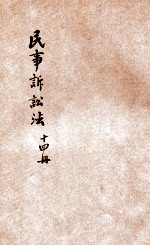 民事訴訟法 十四冊